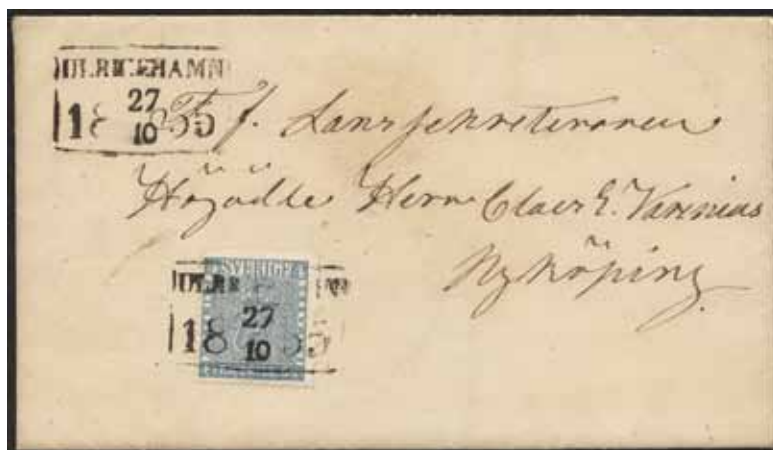 ULRICEHAMN
27
18 55
10
T. f. Landssekreteraren
Högädle Herr Claes E. Varenius
Nyköping.
SVERIGE
27
18 55
10